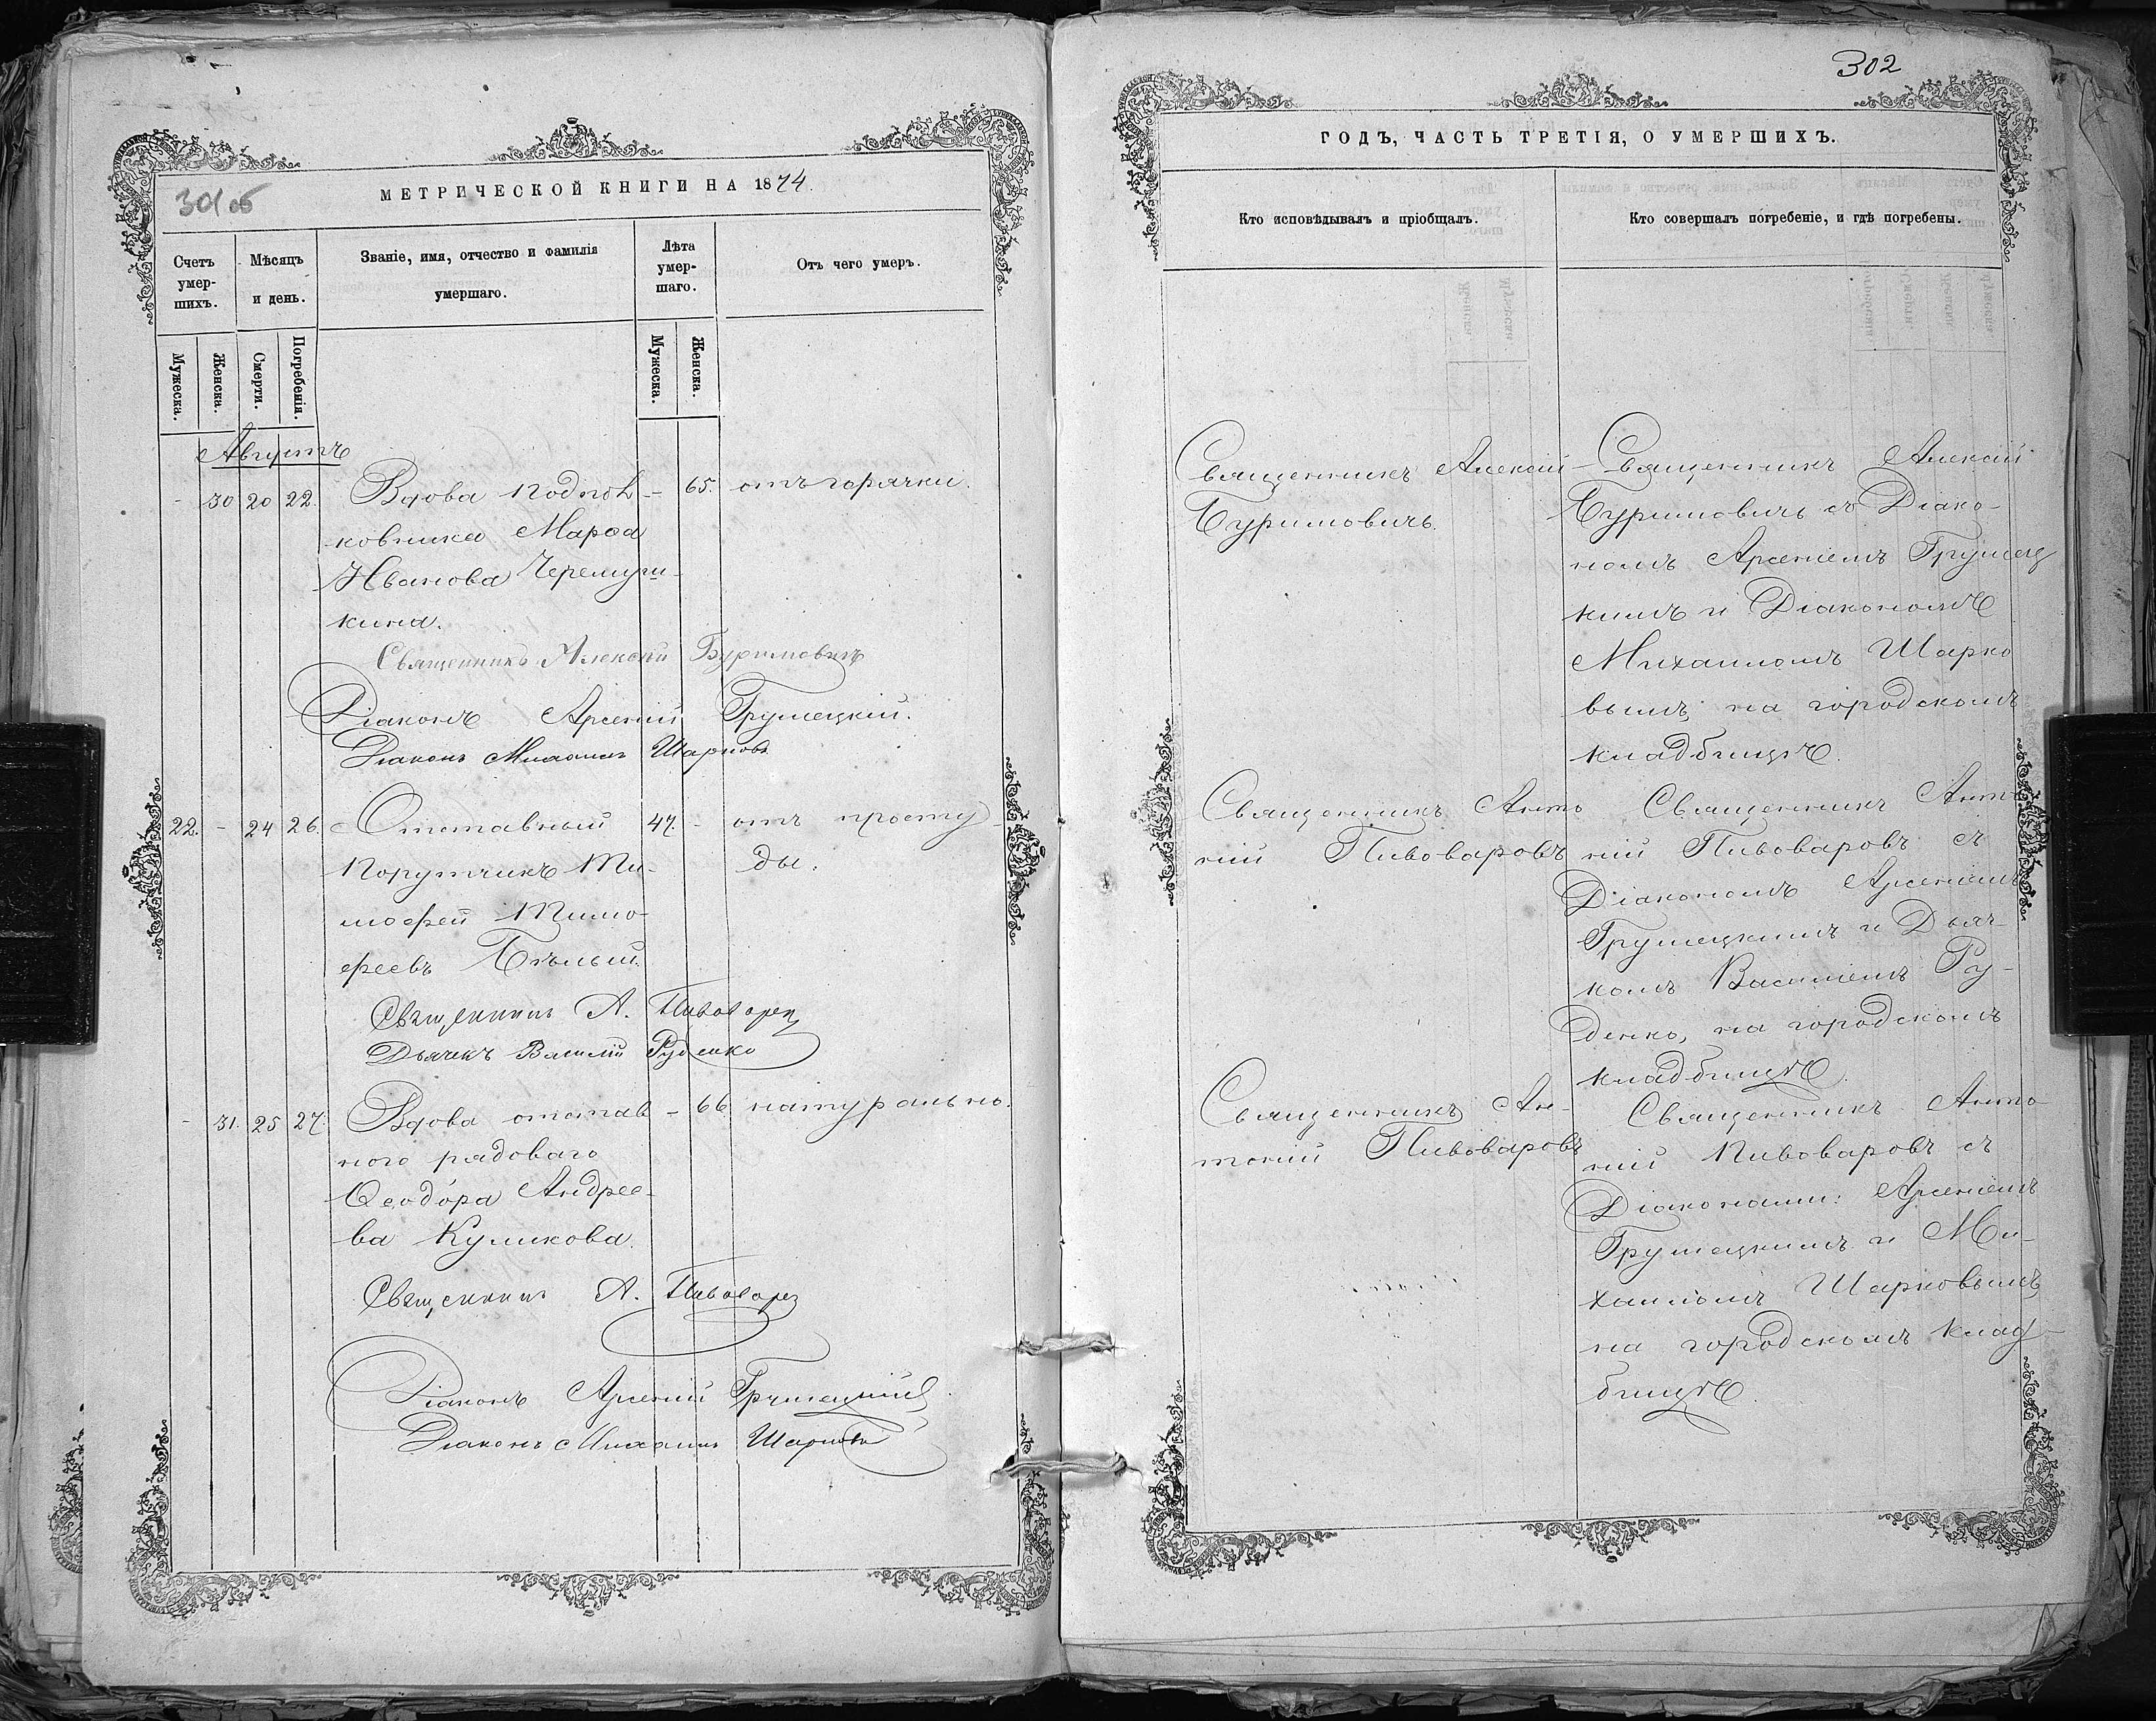 301 об
МЕТРИЧЕСКОЙ КНИГИ НА 1874.
Счетъ умер-шихъ.
Мѣсяцъ и день.
Званіе, имя, отчество и фамилія умершаго.
Лѣта умер-шаго.
Отъ чего умеръ.
Мужеска.
Женска.
Смерти.
Погребенія.
Мужеска.
Женска.
Августъ
- 30 20 22. Вдова подпол- - 65. отъ горячки.
ковника Марѳа
Иванова Черемуш-
кина.
Священникъ Алексій Буримовичъ
Діаконъ Арсеній Грушецкій.
Діаконъ Михаилъ Шарковъ
22. - 24 26. Отставный 47. - отъ просту
Порутчикъ Ти- ды.
мофей Тимо-
феевъ Бѣлый.
Священникъ А. Пивоваровъ
Дьячекъ Василій Руденко
- 31. 25 27. Вдова отстав - 66 натурально.
ного рядоваго
Ѳеодора Андрее-
ва Куликова.
Священникъ А. Пивоваровъ
Діаконъ Арсеній Грушецкій
Діаконъ Михаилъ Шарковъ
302
ГОДЪ, ЧАСТЬ ТРЕТІЯ, О УМЕРШИХЪ.
Кто исповѣдывалъ и пріобщалъ.
Кто совершалъ погребеніе, и гдѣ погребены.
Священникъ Алексій
Буримовичъ.
Священникъ Алексій
Буримовичъ съ Діако-
номъ Арсеніемъ Грушец
кимъ и Діакономъ
Михаиломъ Шарко
вымъ, на городскомъ
кладбищѣ.
Священникъ Анто
ній Пивоваровъ
Священникъ Анто
ній Пивоваровъ съ
Діакономъ Арсеніемъ
Грушецкимъ и Дьяч-
комъ Василіемъ Ру-
денко, на городскомъ
кладбищѣ.
Священникъ Ан-
тоній Пивоваровъ
Священникъ Анто
ній Пивоваровъ съ
Діаконами: Арсеніемъ
Грушецкимъ и Ми-
хаиломъ Шарковымъ
на городскомъ клад-
бищѣ.